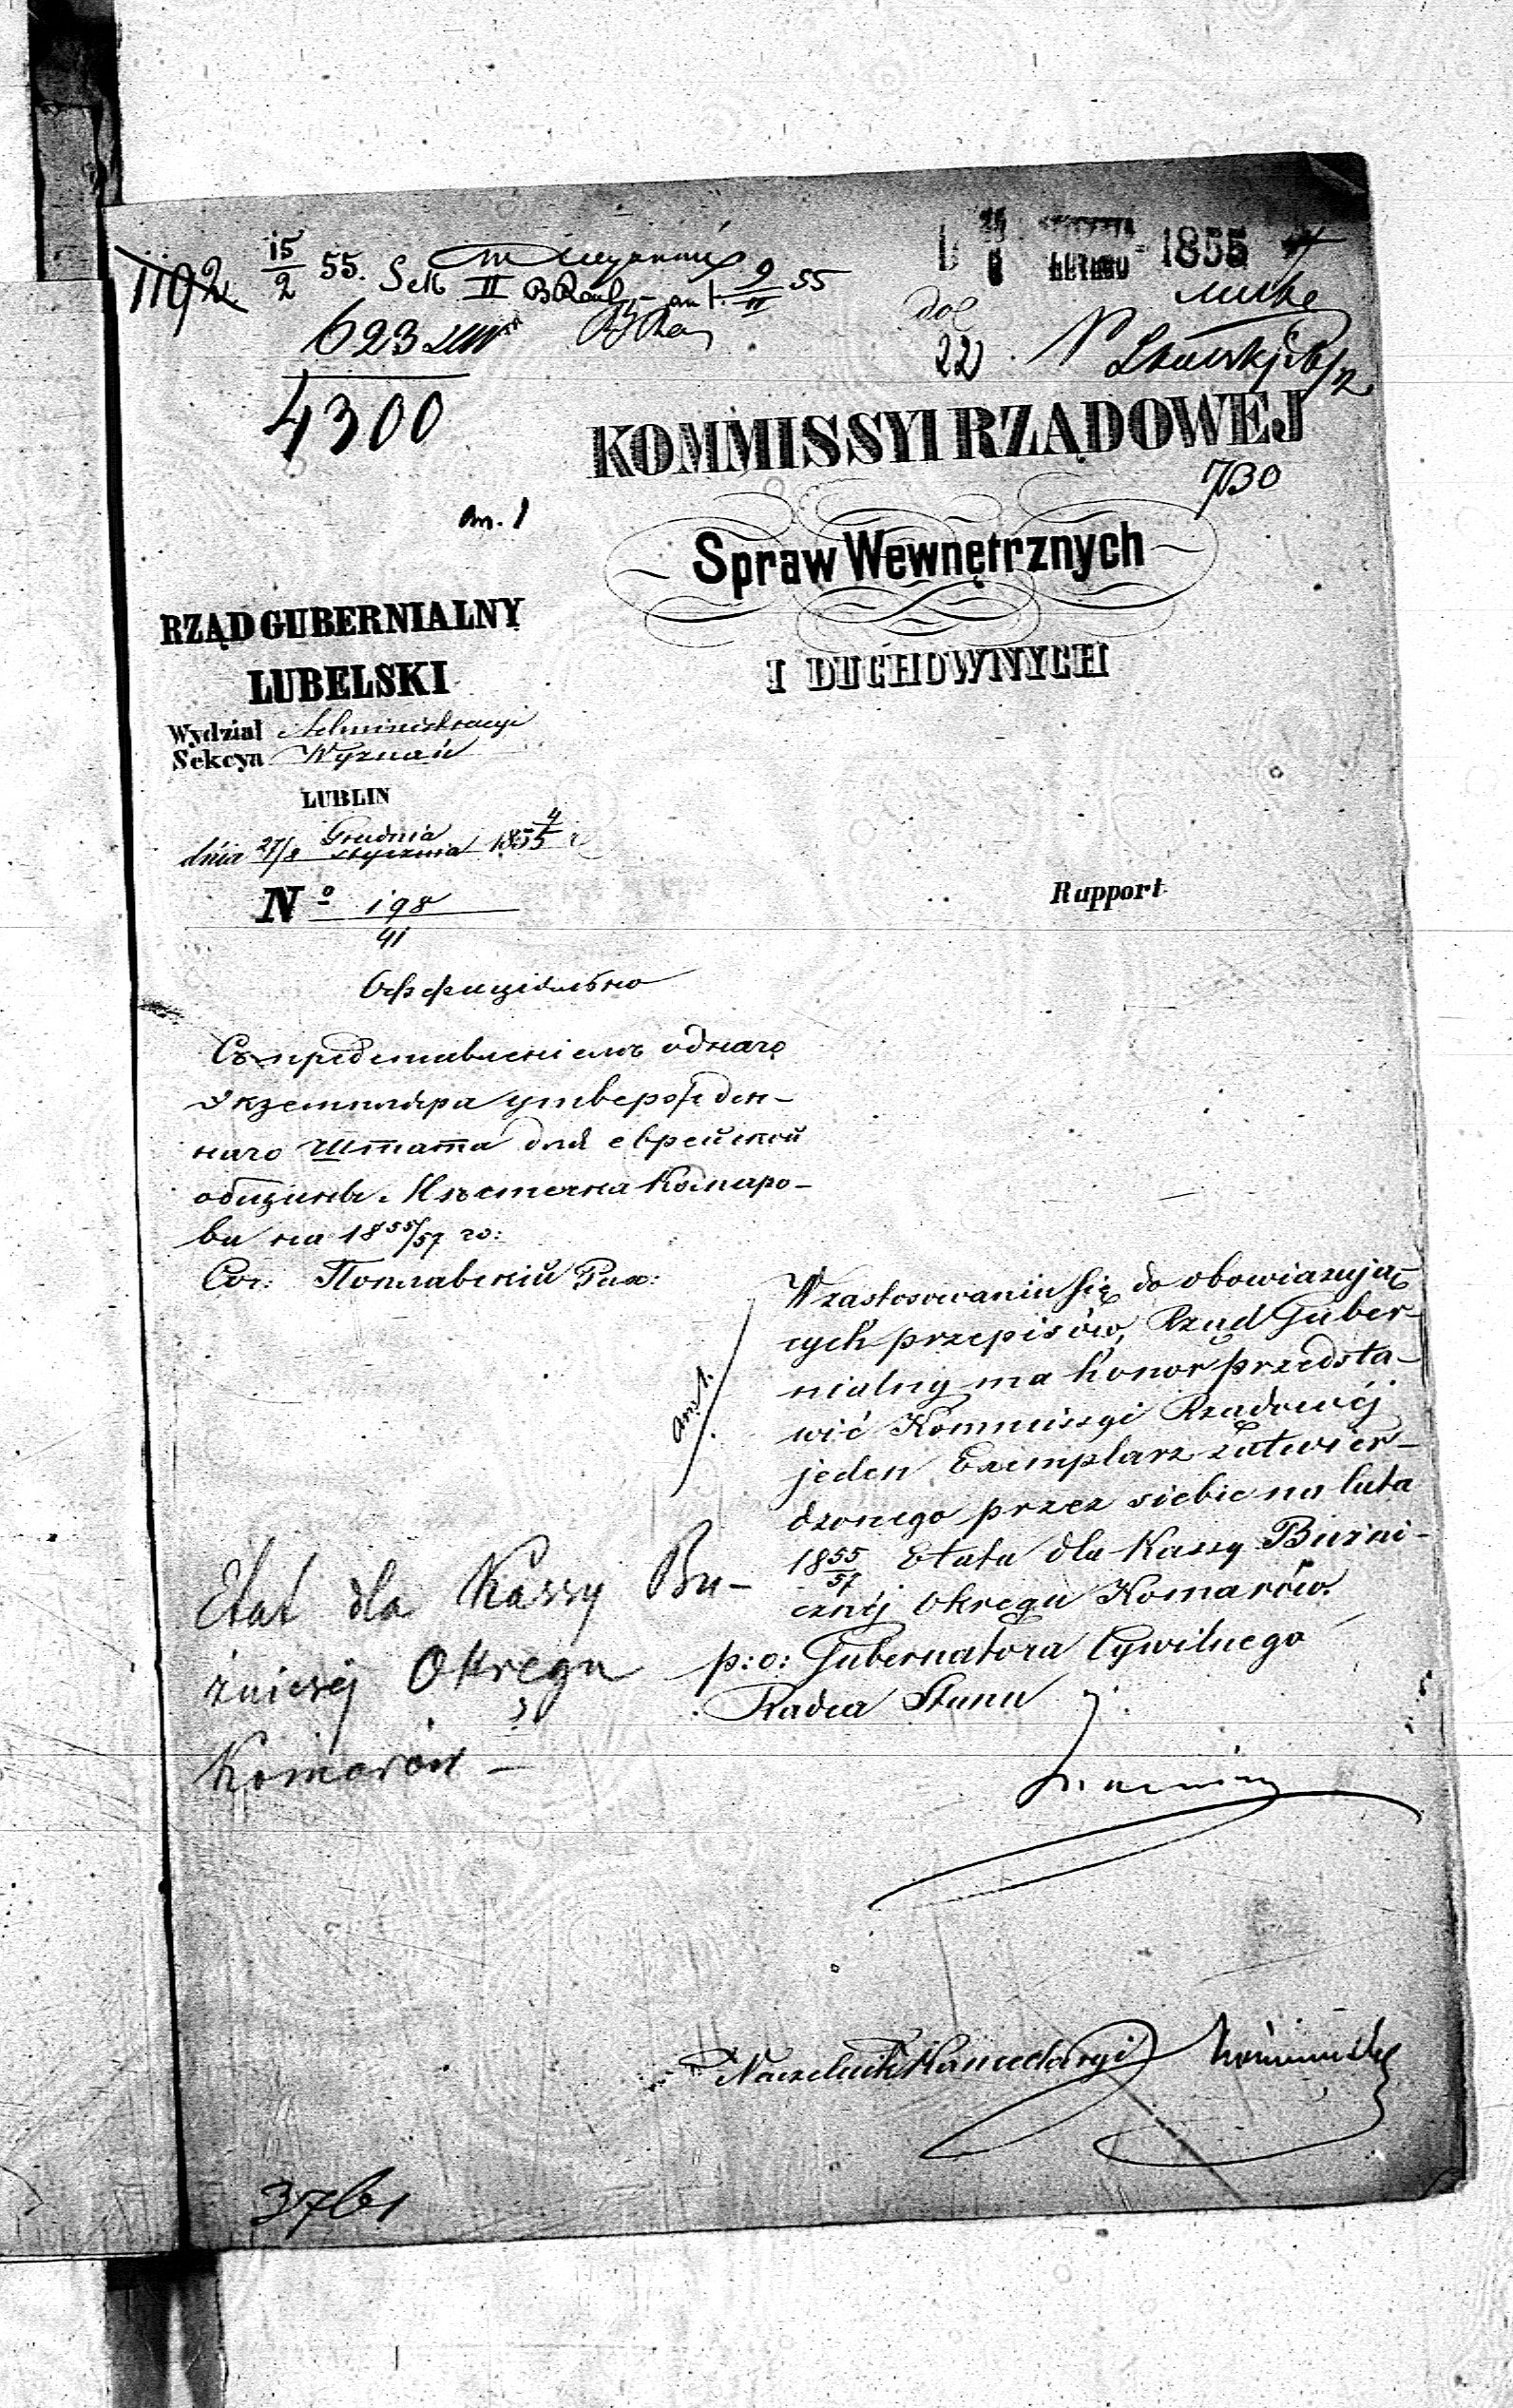 1192
15/2 55. Sek II
9/II 55
1855
623
4300
22
KOMMISSYI RZĄDOWEJ
730
an. 1
Spraw Wewnętrznych
I DUCHOWNYCH
RZĄD GUBERNIALNY
LUBELSKI
Wydział Administracyi
Sekcya Wyznań
LUBLIN
dnia 27/8 Grudnia Stycznia 1854/5 r
Nº 198
41
Rapport
Оффиціально
Съ представленіемъ однаго
экземпляра утвержден-
наго Штата для еврейской
общины Мѣстечка Комаро-
ва на 1855/57 го:
Сог: Поплавскій Рих:
W zastosowaniu się do obowiązują-
cych przepisów, Rząd Guber-
nialny ma honor przedsta-
wić Kommissyi Rządowéj
jeden Exemplarz zatwier-
dzonego przez siebie na lata
1855/57 Etatu dla Kassy Bużni-
cznéj Okręgu Komarów.
an. 1.
Etat dla Kassy Bu-
żniczéj Okręgu
Komarów –
p: o: Gubernatora Cywilnego
Radca Stanu
Naczelnik Kancellaryi
3761